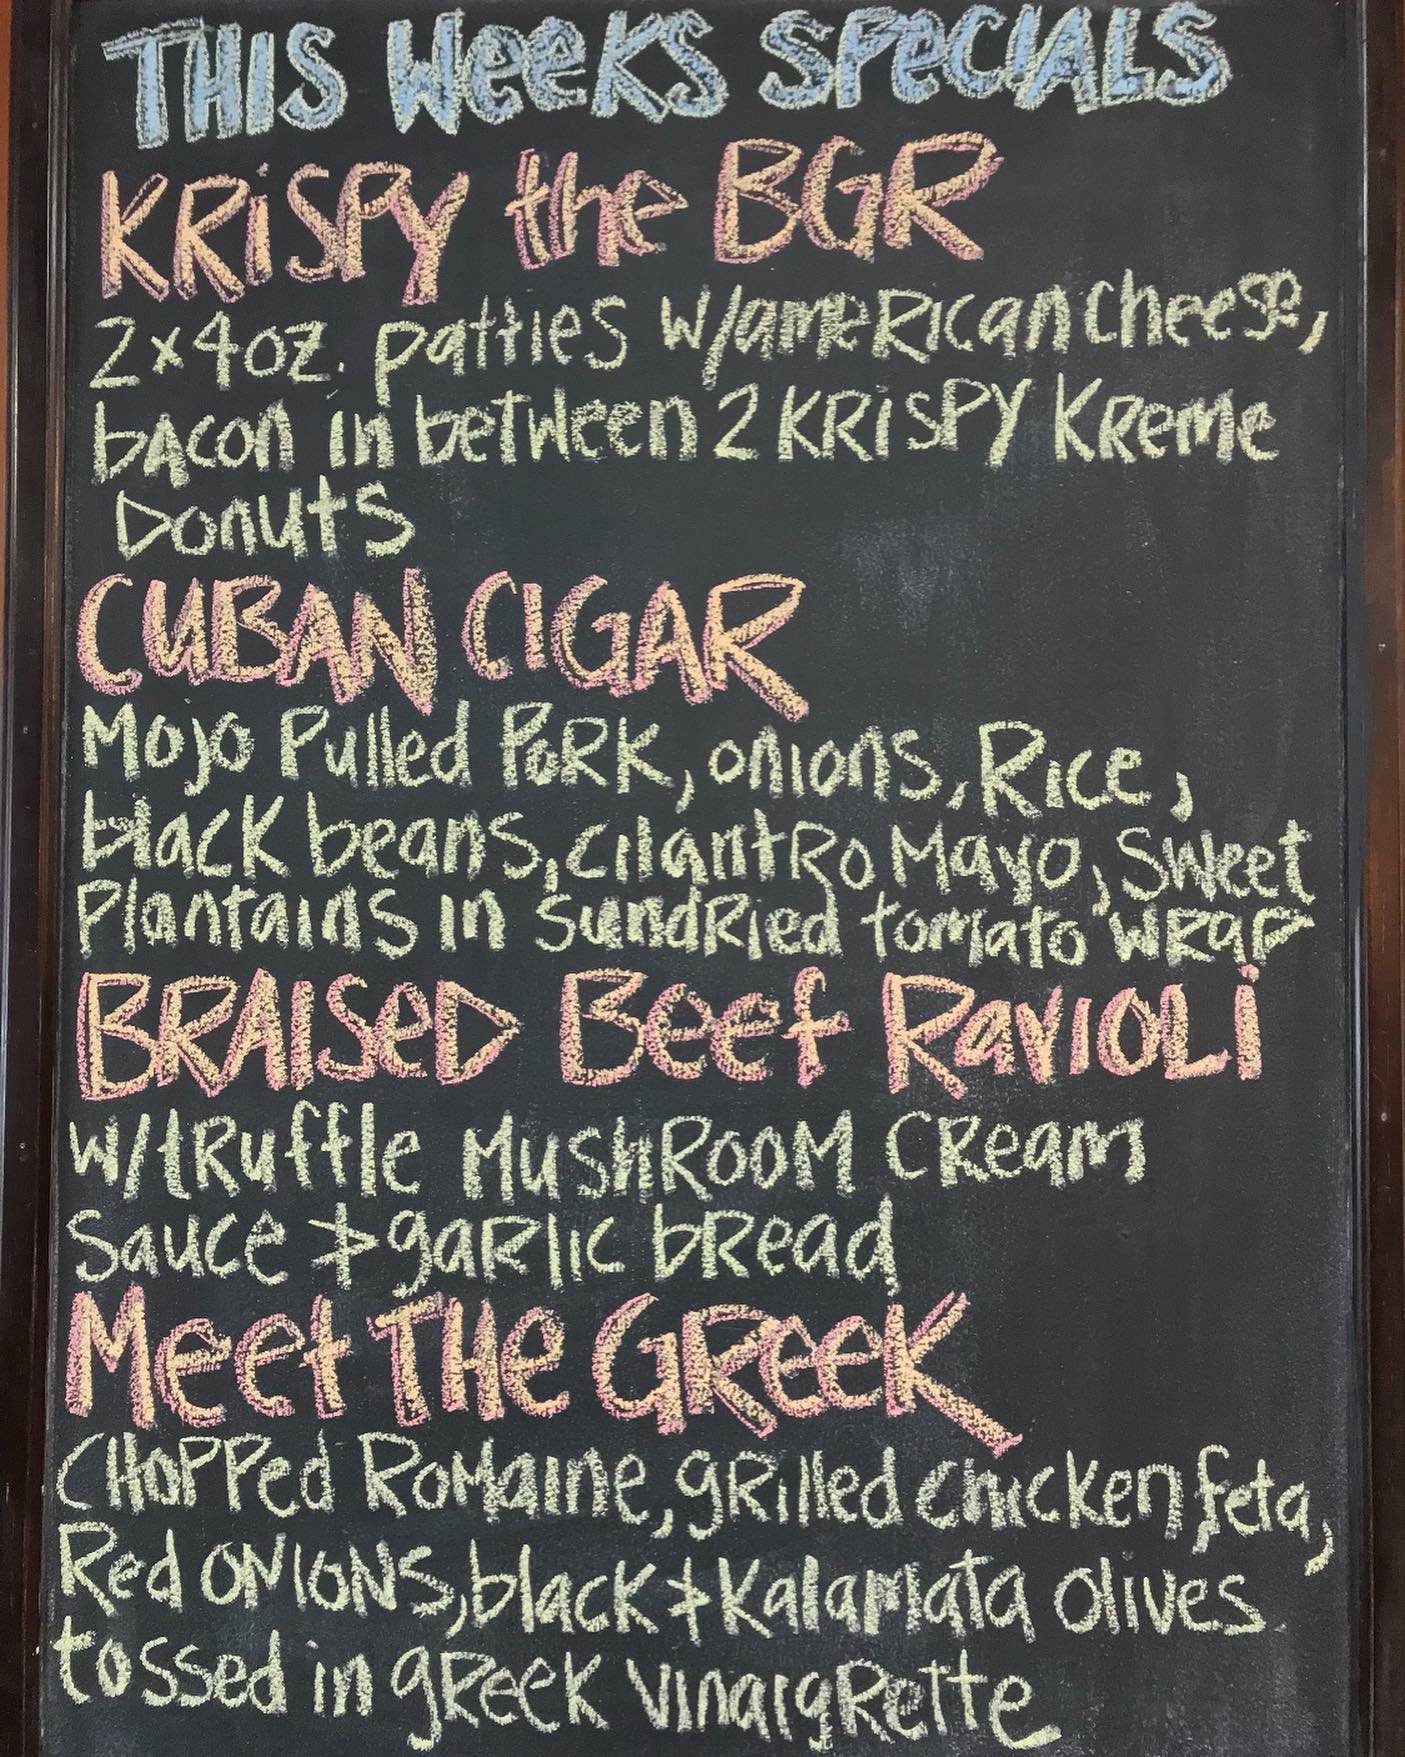 THIS WeeKS SPeCIALS
KRiSPY the BGR
2x4oz. patties w/ameRican cheese,
bAcon in between 2 KRiSPY KReme
Donuts
CUBAN CIGAR
Mojo Pulled PoRK, onions, Rice,
black beans, cilantRo Mayo, Sweet
Plantains in sundRied tomato wRap
BRAISeD Beef RavIOLi
w/tRuffle MushROOM CReam
Sauce + gaRlic bRead
Meet THe GReeK
CHoPPed RoMaine, gRilled chicken feta,
Red ONIONS, black + Kalamata olives
tossed in gReek vinaigRette